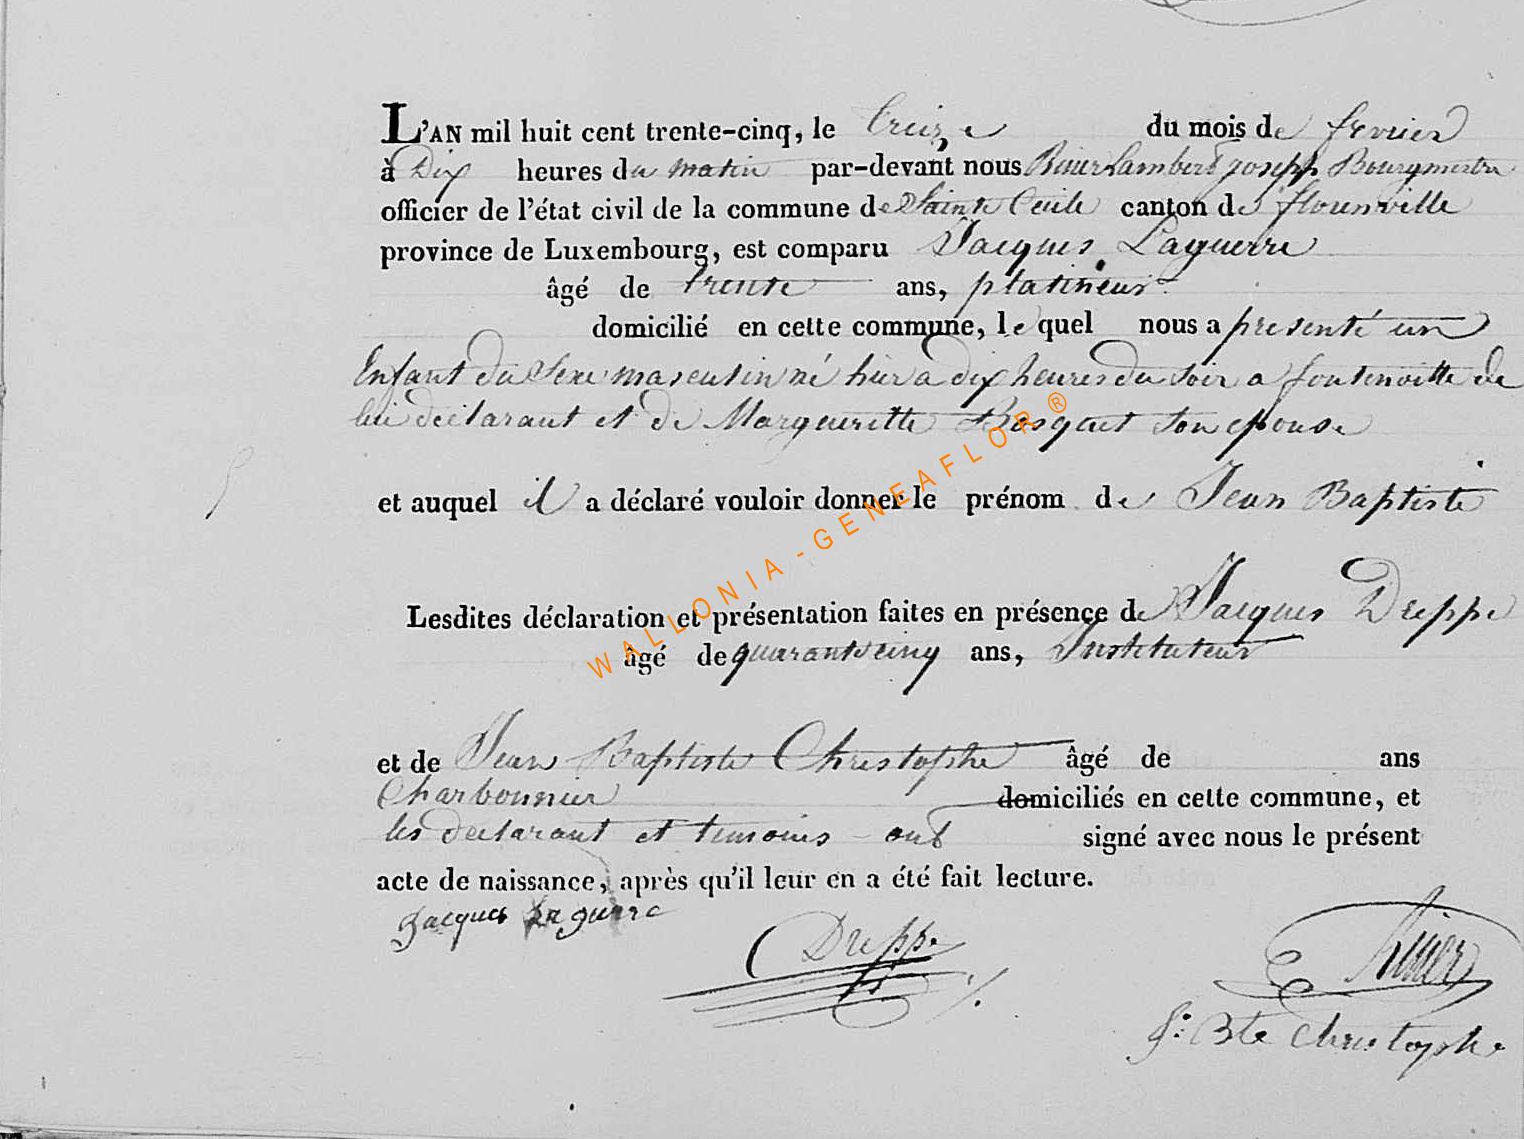 L'AN mil huit cent trente-cinq, le treize du mois de fevrier
à Dix heures du matin par-devant nous Lambert Joseph Bourgmestre
officier de l'état civil de la commune de Sainte Cecile canton de florenville
province de Luxembourg, est comparu Jacques Laguerre
âgé de trente ans, platineur
domicilié en cette commune, lequel nous a presenté un
Enfant du Sexe masculin né hier a dix heures du soir a fontenoille de
lui déclarant et de Margueritte Bosquet son epouse
et auquel il a déclaré vouloir donner le prénom de Jean Baptiste
Lesdites déclaration et présentation faites en présence de Jacques Dreppe
âgé de quarante cinq ans, Instituteur
et de Jean Baptiste Christophe âgé de ans
Charbonnier domiciliés en cette commune, et
les declarant et temoins ont signé avec nous le présent
acte de naissance, après qu'il leur en a été fait lecture.
Jacques Laguerre
Dreppe
J: Bte Christophe
WALLONIA-GENEAFLOR®